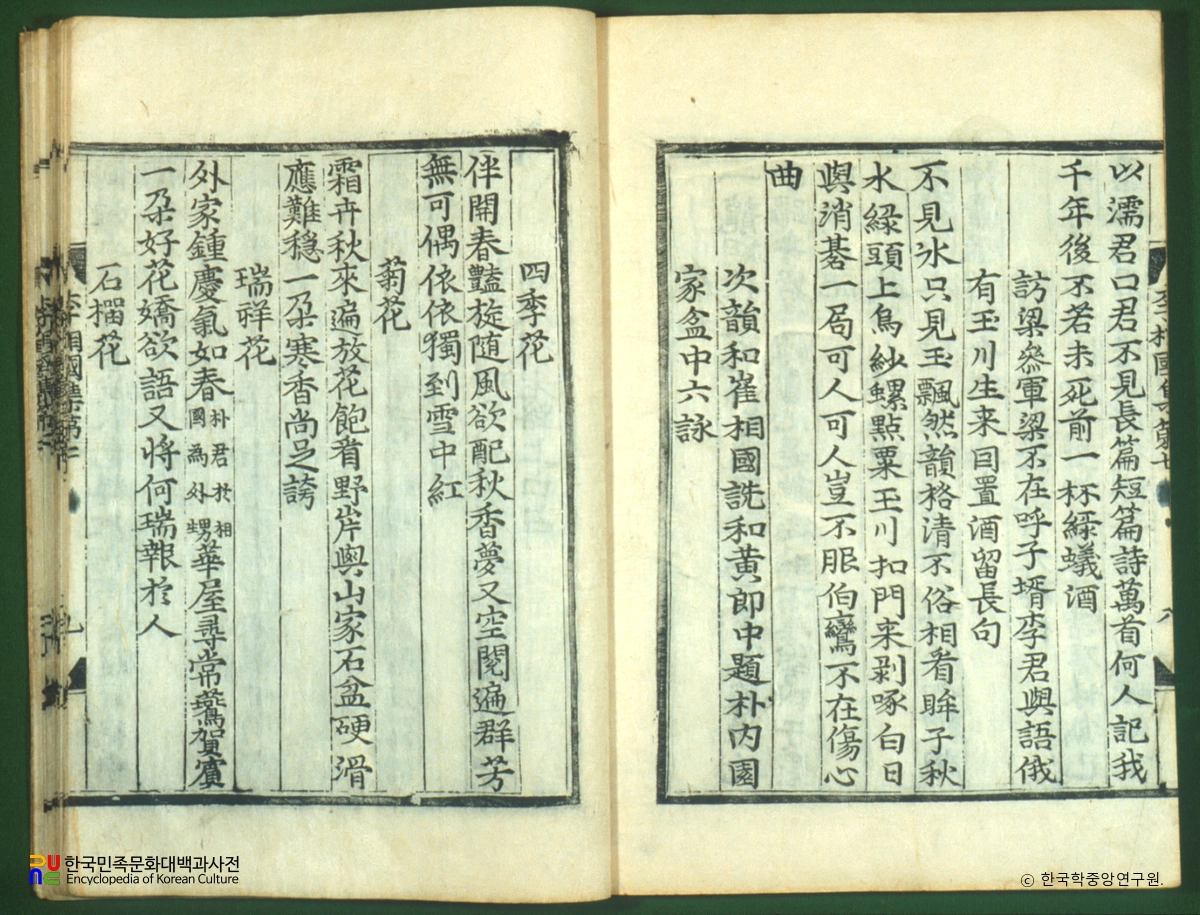 以濡君口君不見長篇短篇詩萬首何人記我
千年後不若未死前一杯綠蟻酒
訪梁叅軍梁不在呼子壻李君與語俄
有玉川生来因置酒留長句
不見氷只見玉飄然韻格清不俗相看眸子秋
水緑頭上烏紗螺點粟玉川扣門来剥啄白日
與消碁一局可人可人豈不服伯鸞不在傷心
曲
次韻和崔相國詵和黄郎中題朴内園
家盆中六詠
四季花
伴開春豔旋随風欲配秋香夢又空閱遍群芳
無可偶依依獨到雪中紅
菊花
霜卉秋來遍放花飽看野岸與山家石盆硬滑
應難穩一朶寒香尚足誇
瑞祥花
外家鍾慶氣如春朴君於相國為外甥華屋尋常鷰賀賓
一朶好花嬌欲語又將何瑞報於人
石榴花
李相國集第
九
한국민족문화대백과사전
Encyclopedia of Korean Culture
ⓒ 한국학중앙연구원.